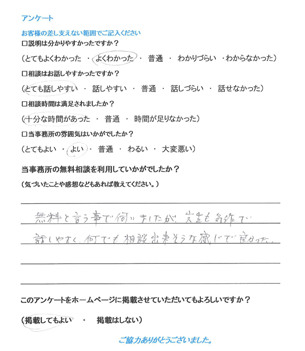 アンケート
お客様の差し支えない範囲でご記入ください
□説明は分かりやすかったですか？
（とてもよくわかった ・ よくわかった ・ 普通 ・ わかりづらい ・わからなかった）
□相談はお話しやすかったですか？
（とても話しやすい ・ 話しやすい ・ 普通 ・ 話しづらい ・ 話せなかった）
□相談時間は満足されましたか？
（十分な時間があった ・ 普通 ・ 時間が足りなかった）
□当事務所の雰囲気はいかがでしたか？
（とてもよい ・ よい ・ 普通 ・ わるい ・ 大変悪い）
当事業所の無料相談を利用していかがでしたか？
（気づいたことや感想などもあれば教えてください。）
無料と言う事で伺いましたが
話しやすく 何でも相談出来そうな感じで良かった。
このアンケートをホームページに掲載させていただいてもよろしいですか？
（掲載してもよい ・ 掲載はしない）
ご協力ありがとうございました。